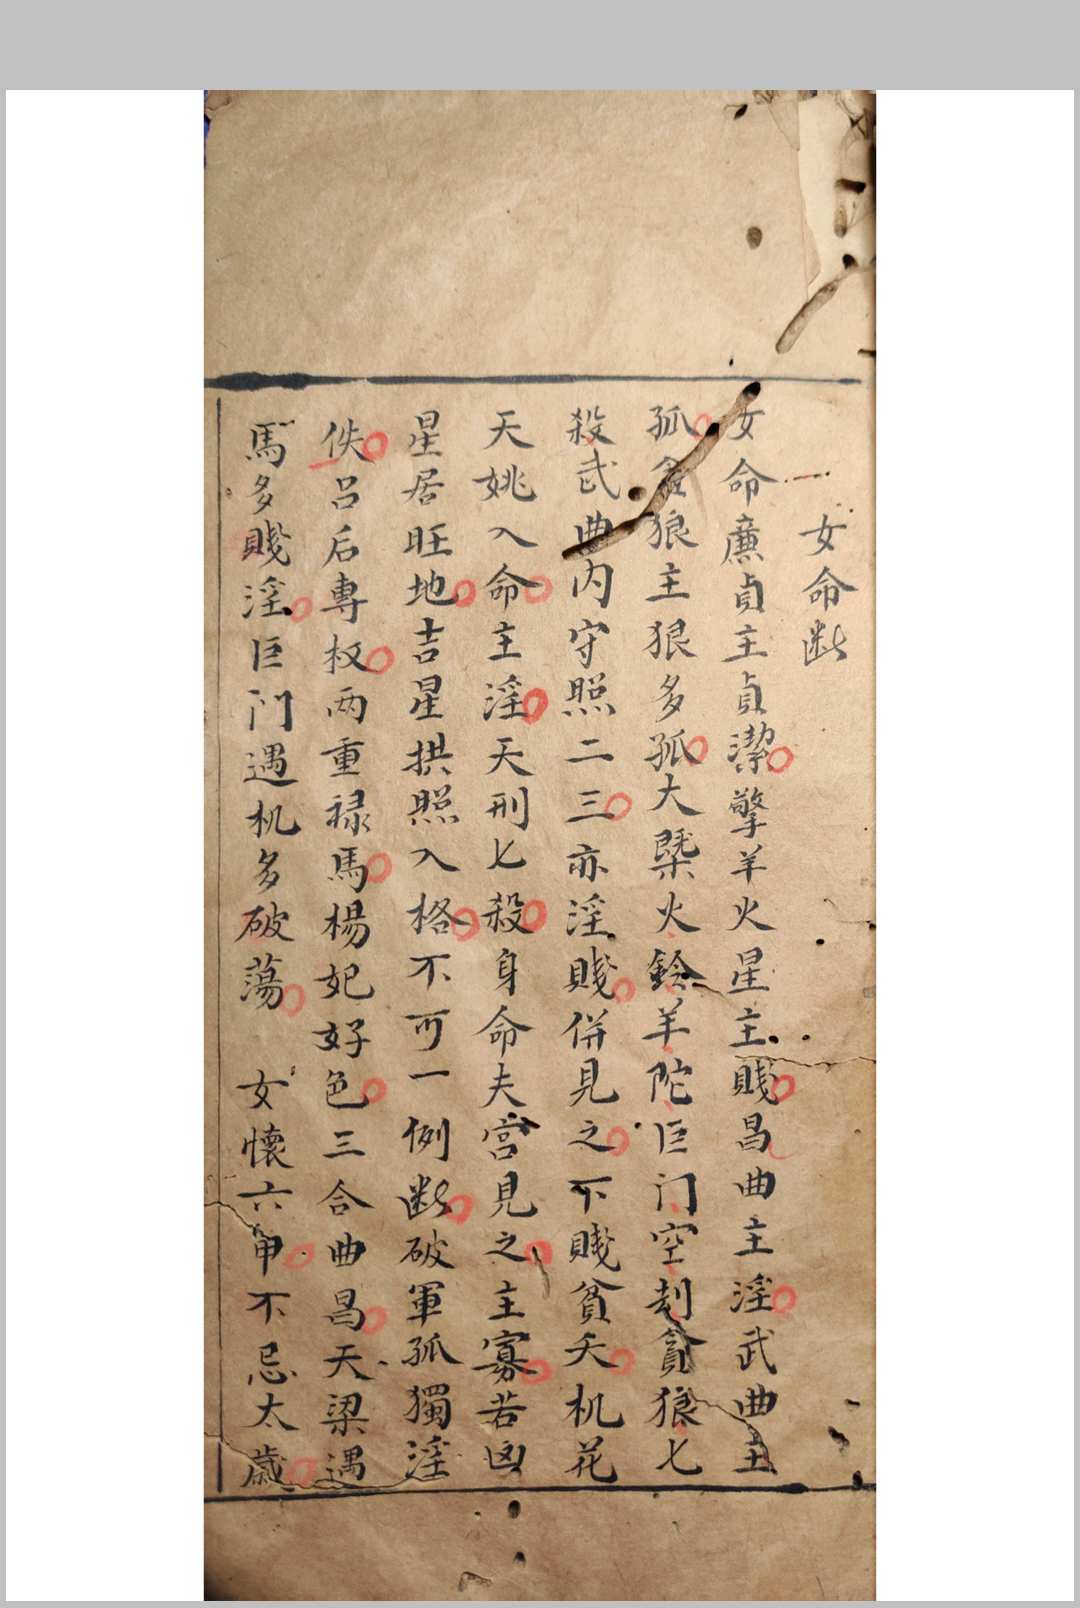 女命断
女命亷貞主貞潔擎羊火星主賤昌曲主淫武曲主
孤貪狼主狠多孤大槩火鈴羊陀巨门空刼貪狼七
殺武曲内守照二三亦淫賤併見之下賤貧夭机花
天姚入命主淫天刑七殺身命夫宫見之主寡若凶
星居旺地吉星拱照入格不可一例断破軍孤獨淫
佚吕后專权两重禄馬楊妃好色三合曲昌天梁遇
馬多賤淫巨门遇机多破蕩 女懷六甲不忌太歲